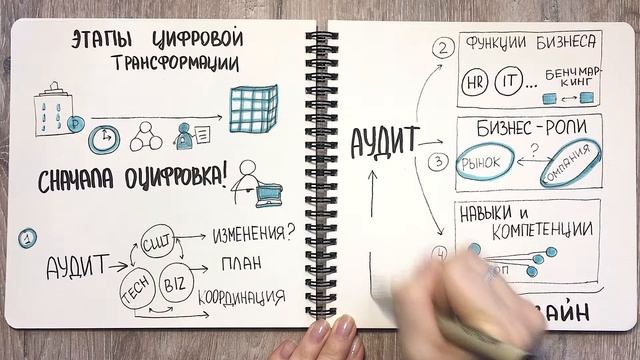 ЭТАПЫ ЦИФРОВОЙ
ТРАНСФОРМАЦИИ
₽
СНАЧАЛА ОЦИФРОВКА!
1
АУДИТ
CULT
TECH
BIZ
ИЗМЕНЕНИЯ?
ПЛАН
КООРДИНАЦИЯ
АУДИТ
2
ФУНКЦИИ БИЗНЕСА
HR
IT
...
БЕНЧМАР-
КИНГ
3
БИЗНЕС-РОЛИ
РЫНОК
?
ОМПАНИЯ
4
НАВЫКИ И
КОМПЕТЕНЦИИ
ОП
АЙН